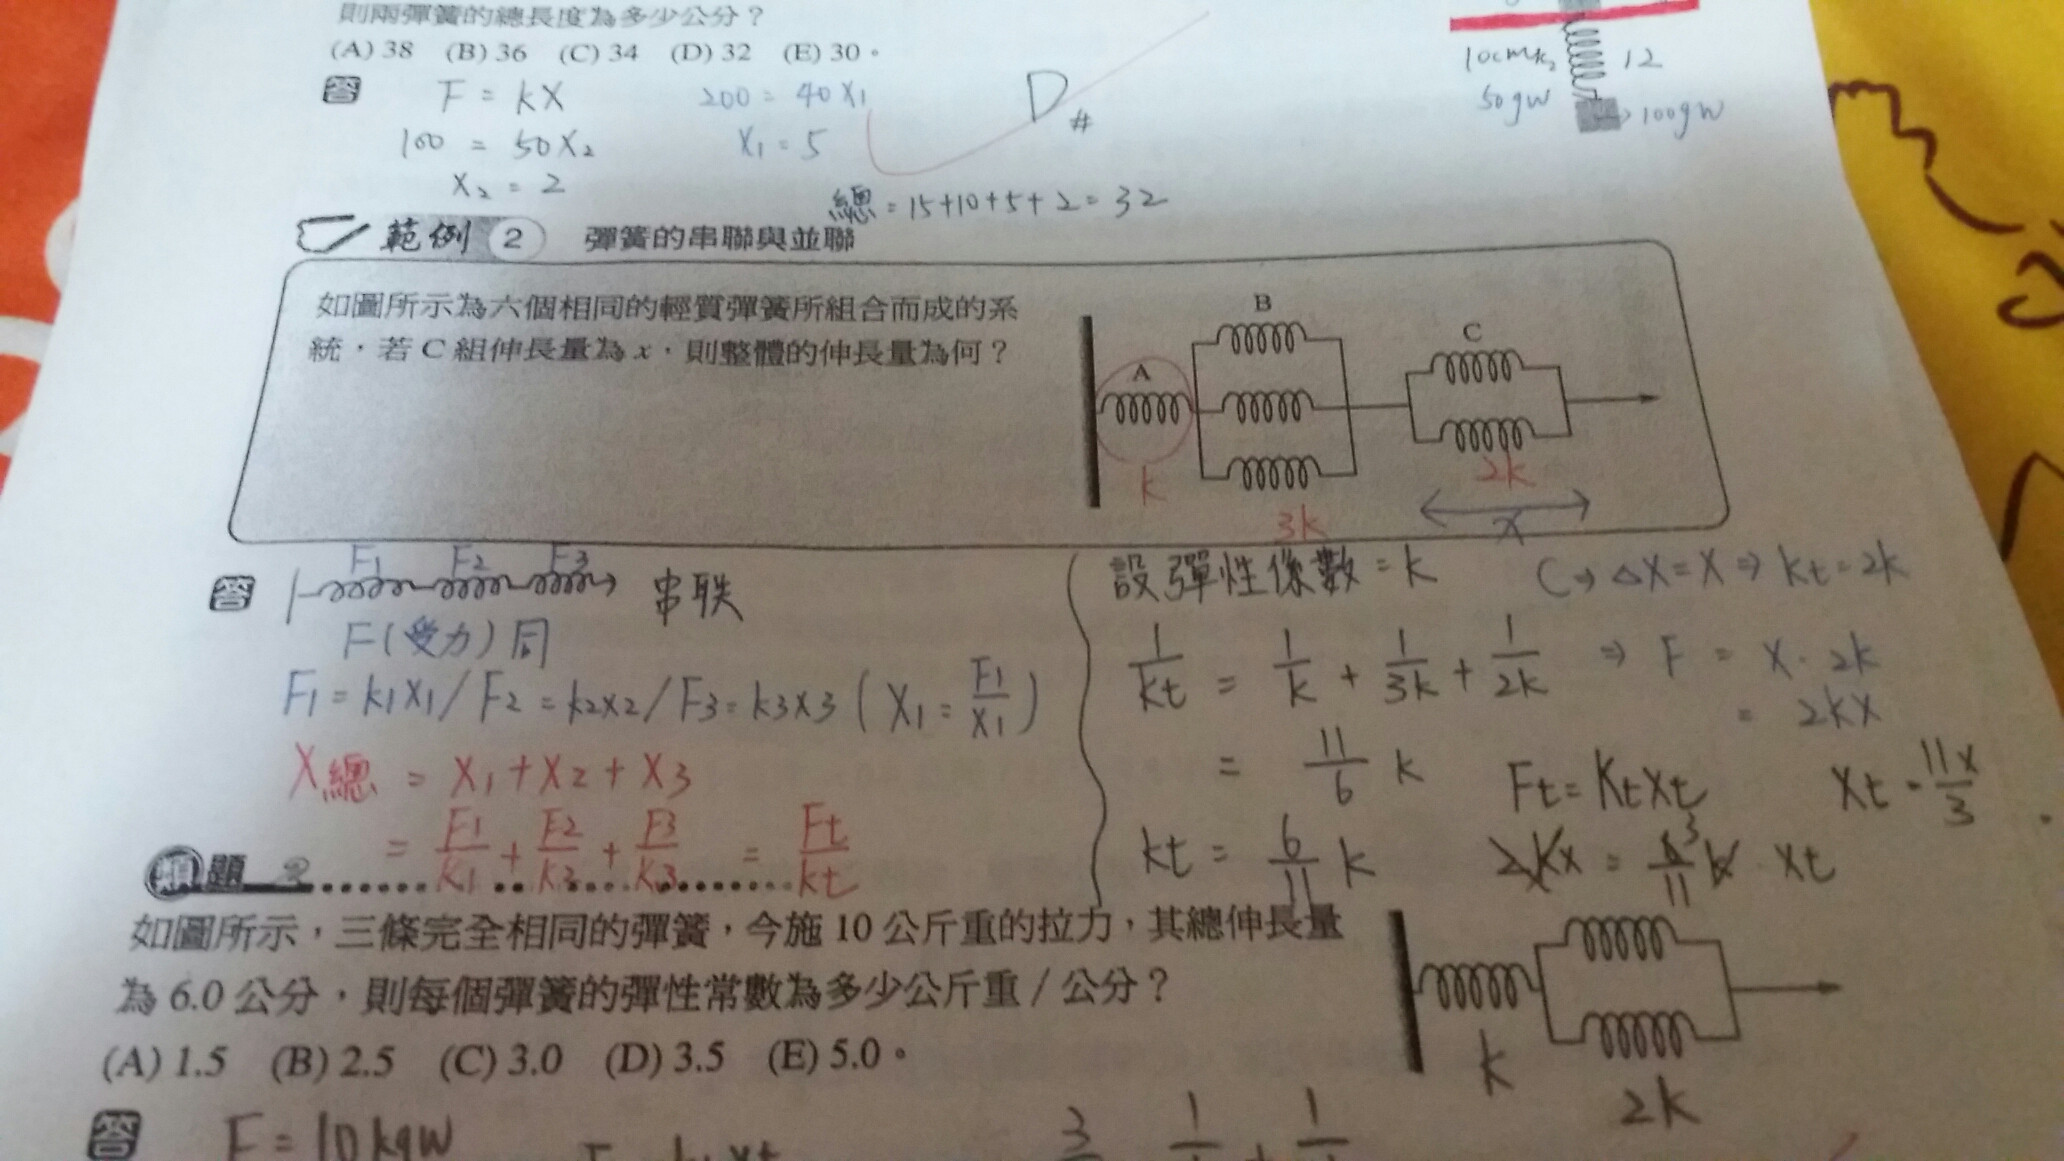 則兩彈簧的總長度為多少公分？
(A) 38 (B) 36 (C) 34 (D) 32 (E) 30。
10cm k₂ 12
50gw 100gw
答 F = kx 200 = 40x₁ D #
100 = 50x₂ x₁ = 5
x₂ = 2
總 = 15+10+5+2 = 32
範例 2 彈簧的串聯與並聯
如圖所示為六個相同的輕質彈簧所組合而成的系
統，若 C 組伸長量為 x，則整體的伸長量為何？
A B C
k 3k 2k
x
答 F1 F2 F3 串联
F(受力)同
F1 = k1x1 / F2 = k2x2 / F3 = k3x3 ( x1 = F1/x1 )
x總 = x1 + x2 + x3
= F1/k1 + F2/k2 + F3/k3 = Ft/kt
設彈性係數 = k C ⇒ Δx = x ⇒ kt = 2k
1/kt = 1/k + 1/3k + 1/2k ⇒ F = x · 2k
= 2kx
= 11/6 k Ft = ktxt xt = 11x/3
kt = 6/11 k 2kx = 6/11 k · xt
3
類題 2
如圖所示，三條完全相同的彈簧，今施 10 公斤重的拉力，其總伸長量
為 6.0 公分，則每個彈簧的彈性常數為多少公斤重 / 公分？
(A) 1.5 (B) 2.5 (C) 3.0 (D) 3.5 (E) 5.0。
k 2k
答 F = 10 kgw